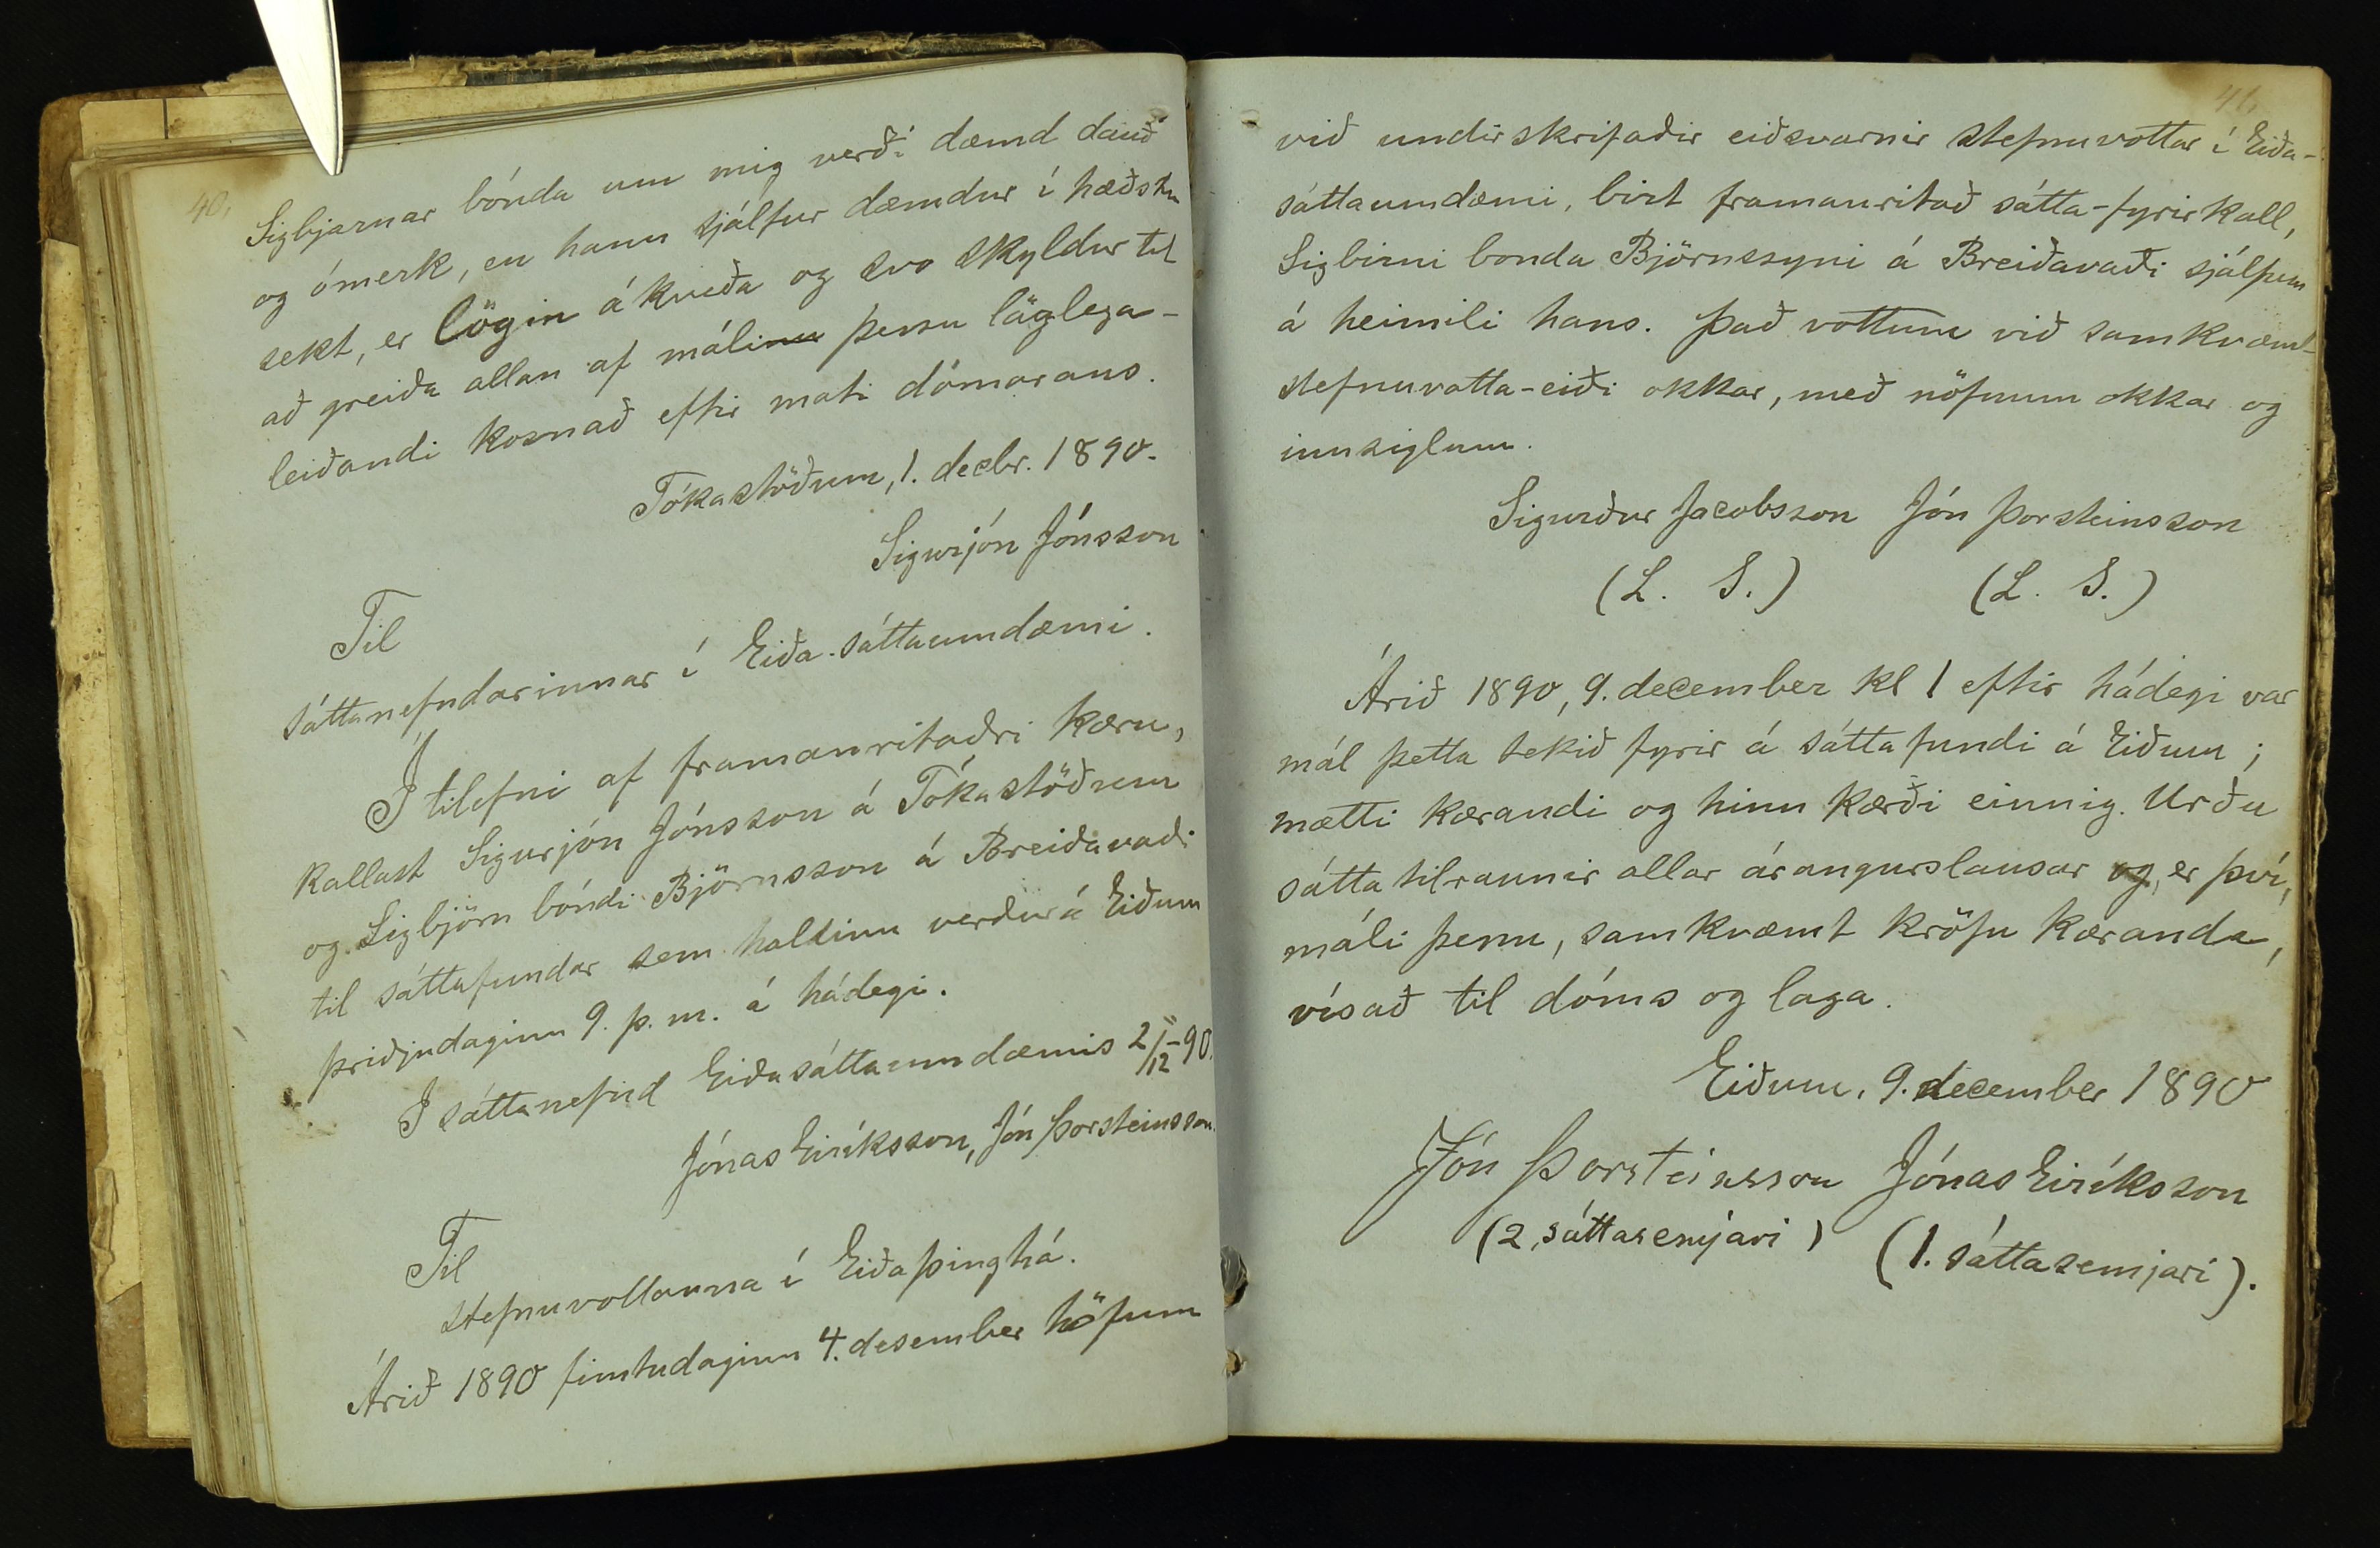 40.
Sigbjarnar bónda um mig verði dæmd dauð
og ómerk, en hann sjálfur dæmdur í hæðstu
sekt, er lögin ákveða og svo skyldur til
að greiða allan af málinu þessu löglega-
leiðandi kosnað eftir mati dómarans.
Tókastöðum, 1. decbr. 1890.
Sigurjón Jónsson
Til
sáttanefndarinnar í Eiða-sáttaumdæmi.
Í tilefni af framanritaðri kæru,
kallast Sigurjón Jónsson á Tókastöðum
og Sigbjörn bóndi Björnsson á Breiðavaði
til sáttafundar sem haldinn verður á Eiðum
þriðjudaginn 9. þ. m. á hádegi.
Í sáttanefnd Eiðasáttaumdæmis 2/12-90.
Jónas Eiríksson, Jón Þorsteinsson.
Til
stefnuvottanna í Eiðaþinghá.
Árið 1890 fimtudaginn 4. desember höfum
við undirskrifaðir eiðsvarnir stefnuvottar í Eiða-
sáttaumdæmi, birt framanritað sátta-fyrirkall,
Sigbirni bonda Björnssyni á Breiðavaði sjálfum
á heimili hans. Það vottum við samkvæmt
stefnuvotta-eiði okkar, með nöfnum okkar og
innsiglum.
Sigurður Jacobsson Jón Þorsteinsson
(L. S.) (L. S.)
Árið 1890, 9. december kl 1 eftir hádegi var
mál þetta tekið fyrir á sáttafundi á Eiðum;
mætti kærandi og hinn kærði einnig. Urðu
sáttatilraunir allar árangurslausar og, er því,
máli þessu, samkvæmt kröfu kæranda,
vísað til dóms og laga.
Eiðum, 9. december 1890
Jón Þorsteinsson Jónas Eiríksson
(2. sáttasemjari) (1. sáttasemjari).